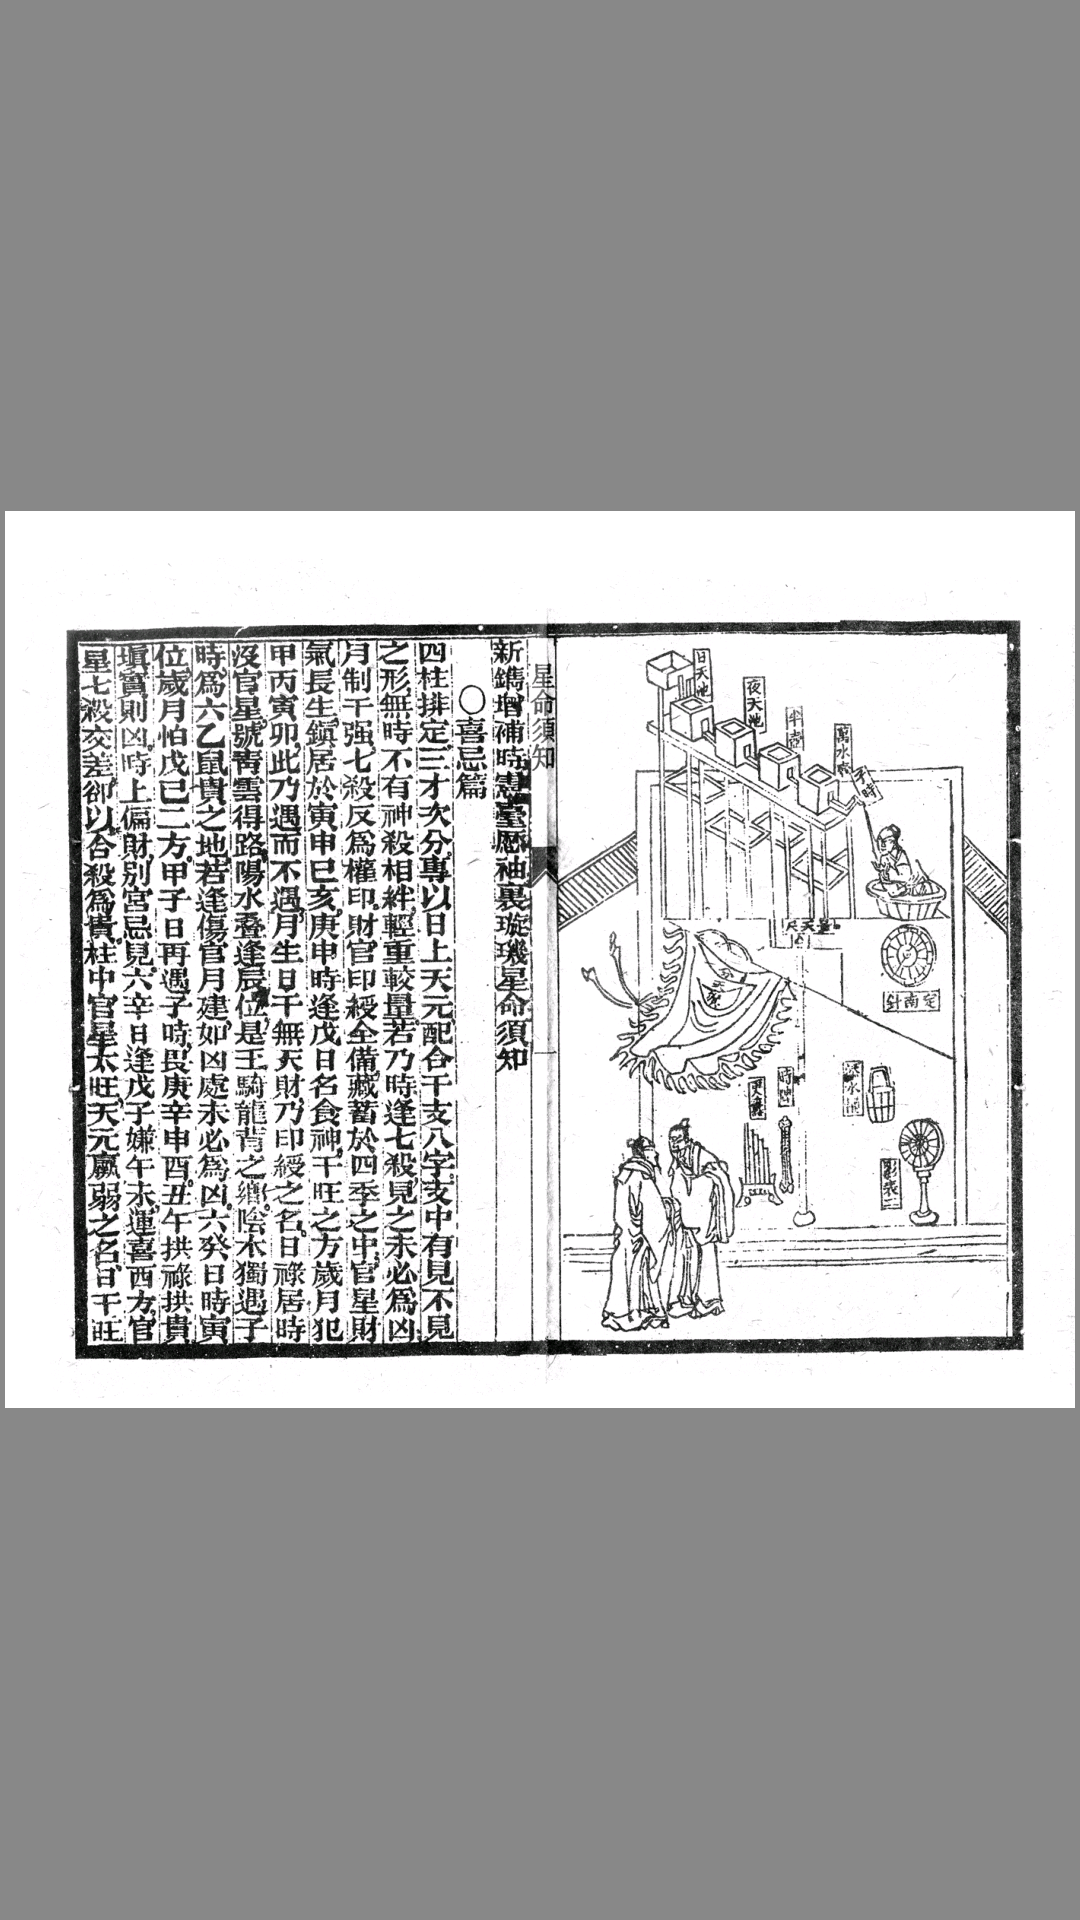 日天池
夜天池
平壺
萬水壺
子時
量天尺
定南針
時牌
更籌
影表
星命須知
一
新鐫增補時憲臺曆袖裏璇璣星命須知
○喜忌篇
四柱排定三才次分專以日上天元配合干支八字支中有見不見
之形無時不有神殺相絆輕重較量若乃時逢七殺見之未必爲凶
月制干强七殺反爲權印財官印綬全備藏蓄於四季之中官星財
氣長生鎮居於寅申巳亥庚申時逢戊日名食神干旺之方歲月犯
甲丙寅卯此乃遇而不遇月生日干無天財乃印綬之名日祿居時
沒官星號靑雲得路陽水叠逢辰位是壬騎龍背之鄉陰木獨遇子
時爲六乙鼠貴之地若逢傷官月建如凶處未必爲凶六癸日時寅
位歲月怕戊己二方甲子日再遇子時畏庚辛申酉丑午拱祿拱貴
塡實則凶時上偏財別宮忌見六辛日逢戊子嫌午未運喜西方官
星七殺交差卻以合殺爲貴柱中官星太旺天元羸弱之名日干旺